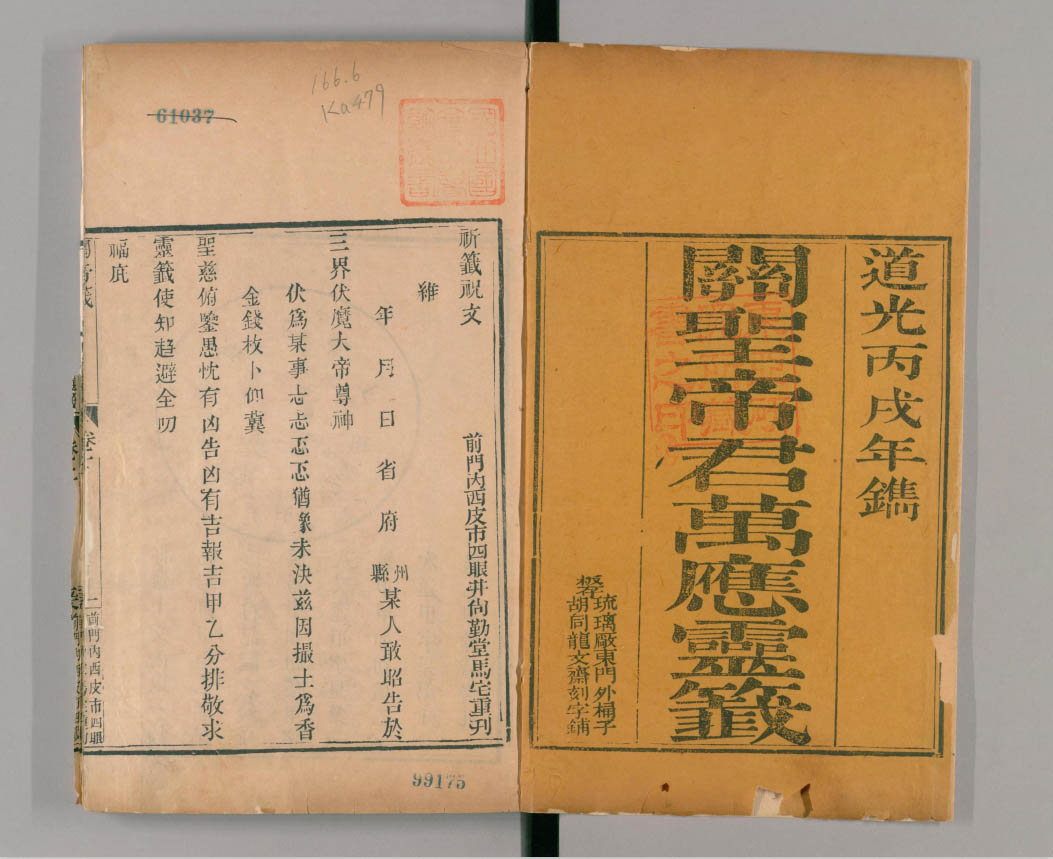 道光丙戌年鐫
關聖帝君萬應靈籤
琉璃厰東門外桶子
胡同龍文齋刻字鋪
166.6
Ka479
61037
祈籤祝文
前門內西皮市四眼井尙勤堂馬宅重刋
維
年月日省府州縣某人敢昭告於
三界伏魔大帝尊神
伏爲某事忐忐忑忑猶豫未決兹因撮土爲香
金錢枚卜仰冀
聖慈俯鑒愚忱有凶告凶有吉報吉甲乙分排敬求
靈籤使知趨避全叨
福庇
二
前門內西皮市四眼
99175